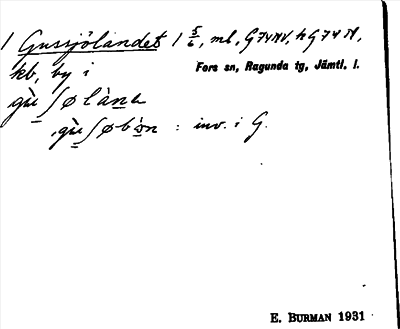 1 Gussjölandet 1 5/6, ml, G74NV, h G74N,
kb, by i Fors sn, Ragunda tg, Jämtl. l.
gù ʃølàna
gùʃøbòn : inv. i G.
E. BURMAN 1931